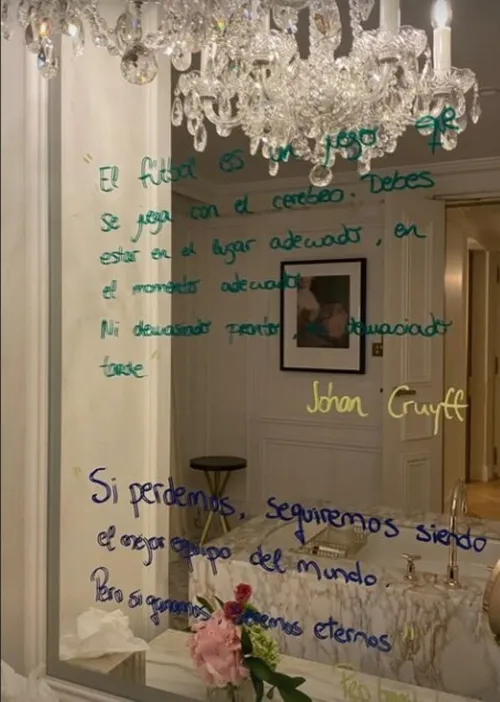 " El fútbol es un juego que
se juega con el cerebro. Debes
estar en el lugar adecuado, en
el momento adecuado.
Ni demasiado pronto, ni demasiado
tarde "
Johan Cruyff
" Si perdemos, seguiremos siendo
el mejor equipo del mundo.
Pero si ganamos seremos eternos "
Pep